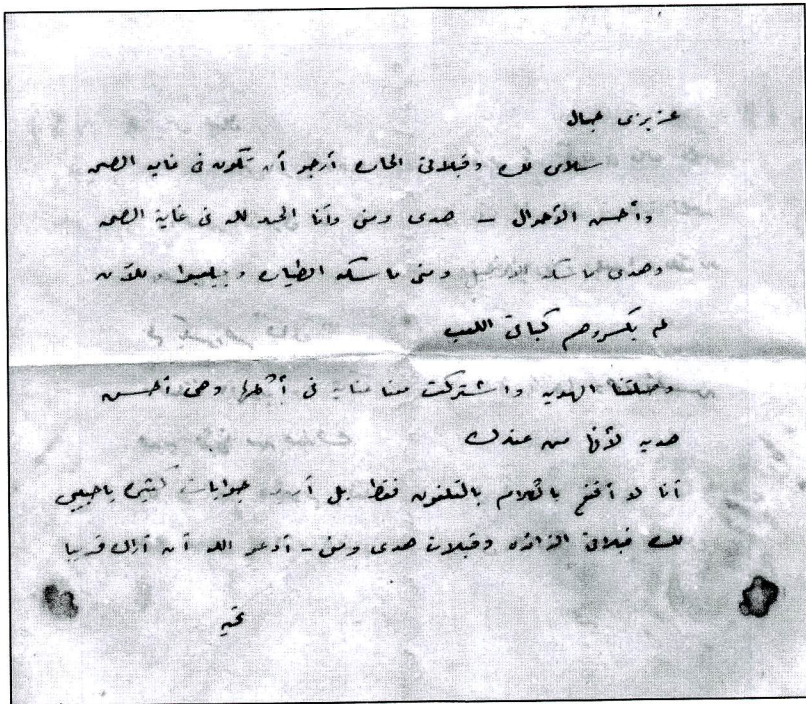 عزيزى جمال
سلامى لك وقبلاتى الحاره أرجو أن تكون فى غاية الصحه
وأحسن الأحوال - هدى ومنى وأنا الحمد لله فى غاية الصحه
وهدى ماسكه ومنى ماسكه الطياره وبيلعبوا وللآن
لم يكسروهم كباقى اللعب
وصلتنا الهديه واشتركت معنا فى أكلها وهى أحسن
هديه لأنها من عندك
أنا لا أقنع بالكلام بالتلفون فقط بل أريد جوابات كثيره ياحبيبى
لك قبلاتى الزائده وقبلات هدى ومنى - أدعو الله أن أراك قريبا
تحيه